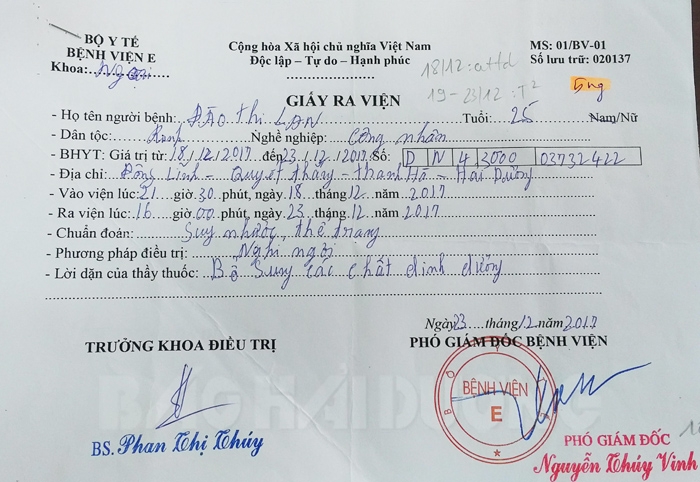 BỘ Y TẾ
BỆNH VIỆN E
Khoa: Ngoại
Cộng hòa Xã hội chủ nghĩa Việt Nam
Độc lập – Tự do – Hạnh phúc
MS: 01/BV-01
Số lưu trữ: 020137
18/12: attd
19-23/12: T2
5ng
GIẤY RA VIỆN
- Họ tên người bệnh: ĐÀO thị LAN Tuổi: 25 Nam/Nữ
- Dân tộc: Kinh Nghề nghiệp: Công nhân
- BHYT: Giá trị từ: 18/12/2017 đến 23/12/2017 Số: D N 4 3000 03732422
- Địa chỉ: Đông Lĩnh – Quyết thắng – thanh Hà – Hải Dương
- Vào viện lúc: 21 giờ 30 phút, ngày 18 tháng 12 năm 2017
- Ra viện lúc: 16 giờ 00 phút, ngày 23 tháng 12 năm 2017
- Chuẩn đoán: Suy nhược thể trạng
- Phương pháp điều trị: Nghỉ ngơi
- Lời dặn của thầy thuốc: Bổ Sung các chất dinh dưỡng
Ngày 23 tháng 12 năm 2017
TRƯỞNG KHOA ĐIỀU TRỊ
PHÓ GIÁM ĐỐC BỆNH VIỆN
BỆNH VIỆN
E
BÁO HẢI DƯƠNG
BS. Phan Thị Thúy
PHÓ GIÁM ĐỐC
Nguyễn Thúy Vinh